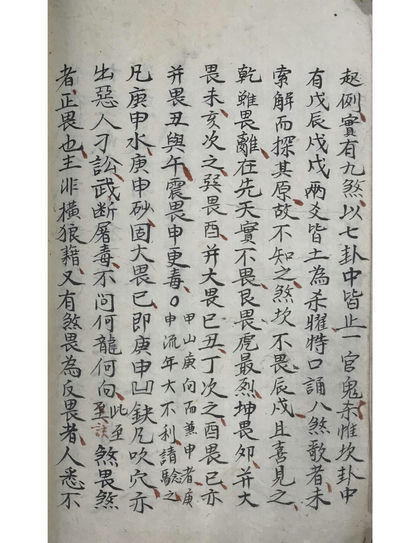 起例實有九煞以七卦中皆止一官鬼奈惟坎卦中
有戊辰戊戌兩爻皆土為杀曜特口誦八煞歌者未
索解而探其原故不知之煞坎不畏辰戌且喜見之
乾雖畏離在先天實不畏艮畏虎最烈坤畏卯并大
畏未亥次之巽畏酉并大畏巳丑丁次之酉畏巳亦
并畏丑與午震畏申更毒〇甲山庚向而兼申者庚
申流年大不利請騐之
凡庚申水庚申砂固大畏已即庚申凹缺凡吹穴亦
出惡人刁訟武断屠毒不問何龍何向此至
至訣煞畏煞
者正畏也主非橫狼藉又有煞畏為反畏者人悉不